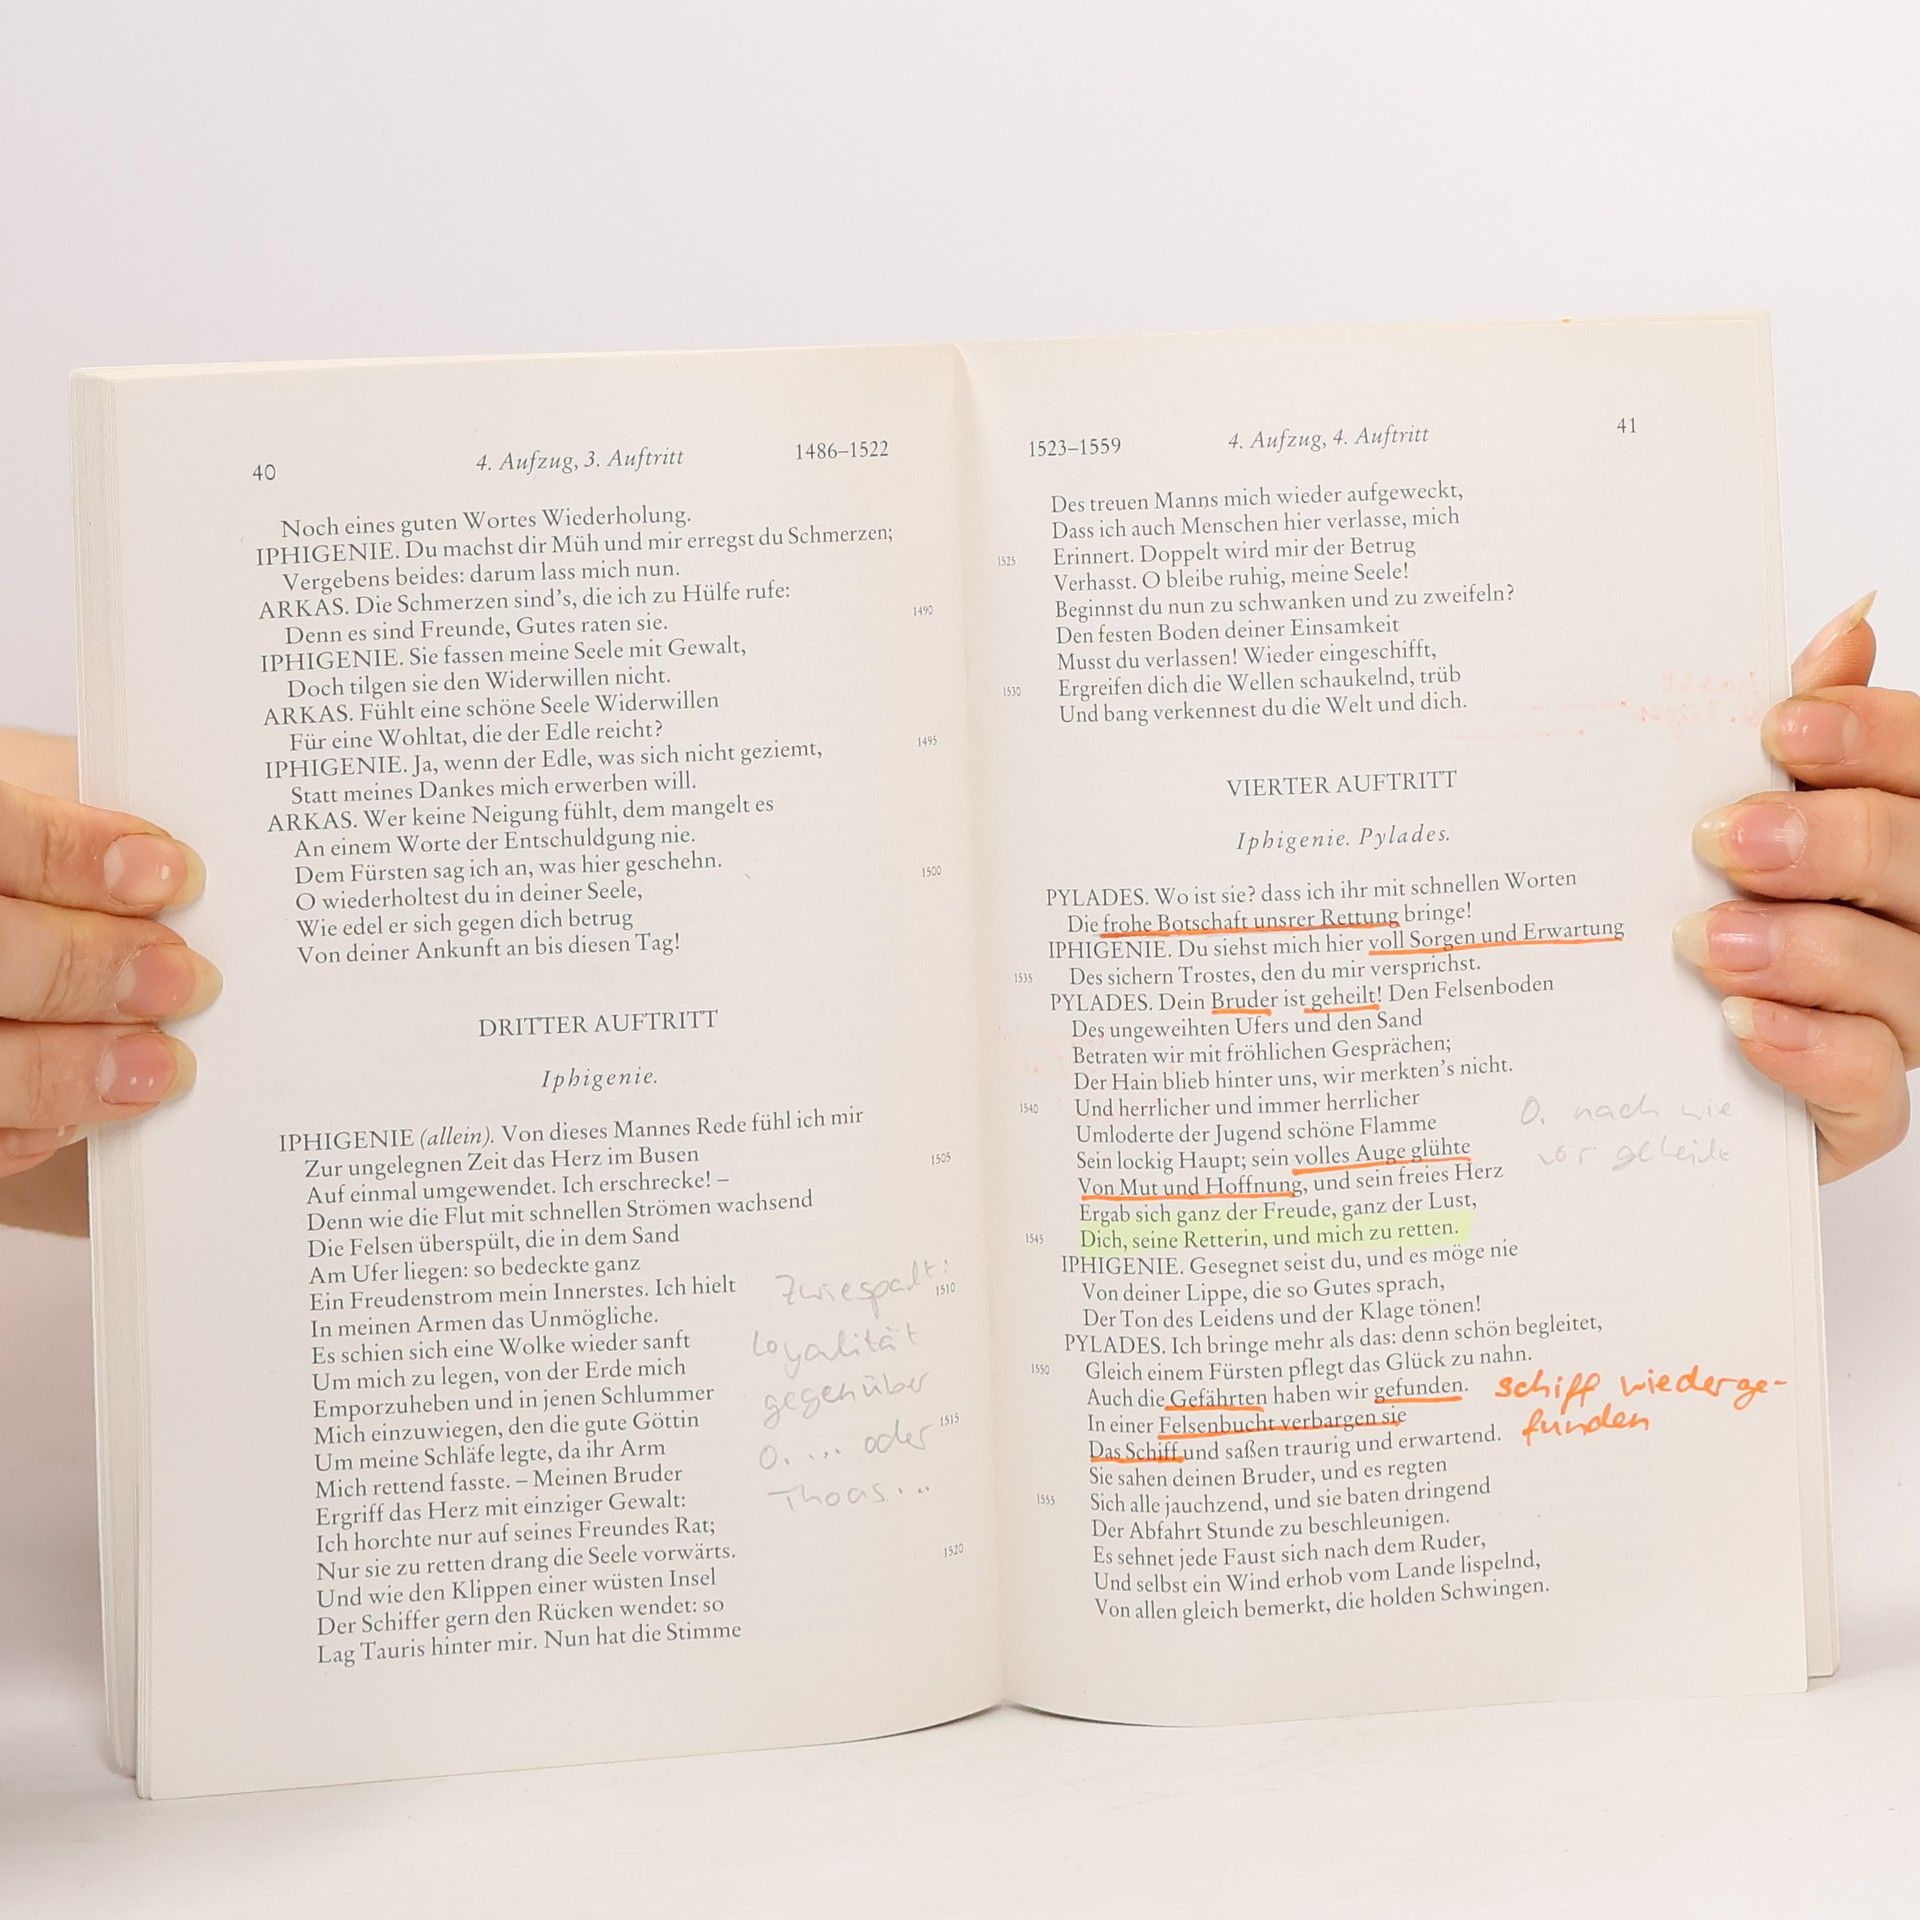 40 4. Aufzug, 3. Auftritt 1486–1522
Noch eines guten Wortes Wiederholung.
IPHIGENIE. Du machst dir Müh und mir erregst du Schmerzen;
Vergebens beides: darum lass mich nun.
ARKAS. Die Schmerzen sind's, die ich zu Hülfe rufe:
Denn es sind Freunde, Gutes raten sie. 1490
IPHIGENIE. Sie fassen meine Seele mit Gewalt,
Doch tilgen sie den Widerwillen nicht.
ARKAS. Fühlt eine schöne Seele Widerwillen
Für eine Wohltat, die der Edle reicht?
IPHIGENIE. Ja, wenn der Edle, was sich nicht geziemt, 1495
Statt meines Dankes mich erwerben will.
ARKAS. Wer keine Neigung fühlt, dem mangelt es
An einem Worte der Entschuldgung nie.
Dem Fürsten sag ich an, was hier geschehn.
O wiederholtest du in deiner Seele, 1500
Wie edel er sich gegen dich betrug
Von deiner Ankunft an bis diesen Tag!
DRITTER AUFTRITT
Iphigenie.
IPHIGENIE (allein). Von dieses Mannes Rede fühl ich mir
Zur ungelegnen Zeit das Herz im Busen
Auf einmal umgewendet. Ich erschrecke! – 1505
Denn wie die Flut mit schnellen Strömen wachsend
Die Felsen überspült, die in dem Sand
Am Ufer liegen: so bedeckte ganz
Ein Freudenstrom mein Innerstes. Ich hielt
In meinen Armen das Unmögliche. 1510
Es schien sich eine Wolke wieder sanft
Um mich zu legen, von der Erde mich
Emporzuheben und in jenen Schlummer
Mich einzuwiegen, den die gute Göttin
Um meine Schläfe legte, da ihr Arm 1515
Mich rettend fasste. – Meinen Bruder
Ergriff das Herz mit einziger Gewalt:
Ich horchte nur auf seines Freundes Rat;
Nur sie zu retten drang die Seele vorwärts.
Und wie den Klippen einer wüsten Insel 1520
Der Schiffer gern den Rücken wendet: so
Lag Tauris hinter mir. Nun hat die Stimme
Zwiespalt:
Loyalität
gegenüber
O. ... oder
Thoas...
1523–1559 4. Aufzug, 4. Auftritt 41
Des treuen Manns mich wieder aufgeweckt,
Dass ich auch Menschen hier verlasse, mich
1525 Erinnert. Doppelt wird mir der Betrug
Verhasst. O bleibe ruhig, meine Seele!
Beginnst du nun zu schwanken und zu zweifeln?
Den festen Boden deiner Einsamkeit
Musst du verlassen! Wieder eingeschifft,
1530 Ergreifen dich die Wellen schaukelnd, trüb
Und bang verkennest du die Welt und dich.
VIERTER AUFTRITT
Iphigenie. Pylades.
PYLADES. Wo ist sie? dass ich ihr mit schnellen Worten
Die frohe Botschaft unsrer Rettung bringe!
IPHIGENIE. Du siehst mich hier voll Sorgen und Erwartung
1535 Des sichern Trostes, den du mir versprichst.
PYLADES. Dein Bruder ist geheilt! Den Felsenboden
Des ungeweihten Ufers und den Sand
Betraten wir mit fröhlichen Gesprächen;
Der Hain blieb hinter uns, wir merkten's nicht.
1540 Und herrlicher und immer herrlicher
Umloderte der Jugend schöne Flamme
Sein lockig Haupt; sein volles Auge glühte
Von Mut und Hoffnung, und sein freies Herz
Ergab sich ganz der Freude, ganz der Lust,
1545 Dich, seine Retterin, und mich zu retten.
O. nach wie
vor geheilt
IPHIGENIE. Gesegnet seist du, und es möge nie
Von deiner Lippe, die so Gutes sprach,
Der Ton des Leidens und der Klage tönen!
PYLADES. Ich bringe mehr als das: denn schön begleitet,
1550 Gleich einem Fürsten pflegt das Glück zu nahn.
Auch die Gefährten haben wir gefunden.
In einer Felsenbucht verbargen sie
Das Schiff und saßen traurig und erwartend.
schiff wiederge-
funden
Sie sahen deinen Bruder, und es regten
1555 Sich alle jauchzend, und sie baten dringend
Der Abfahrt Stunde zu beschleunigen.
Es sehnet jede Faust sich nach dem Ruder,
Und selbst ein Wind erhob vom Lande lispelnd,
Von allen gleich bemerkt, die holden Schwingen.